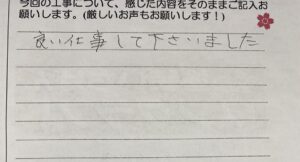 今回の工事について、感じた内容をそのままご記入お
願いします。(厳しいお声もお願いします！)
良い仕事して下さいました